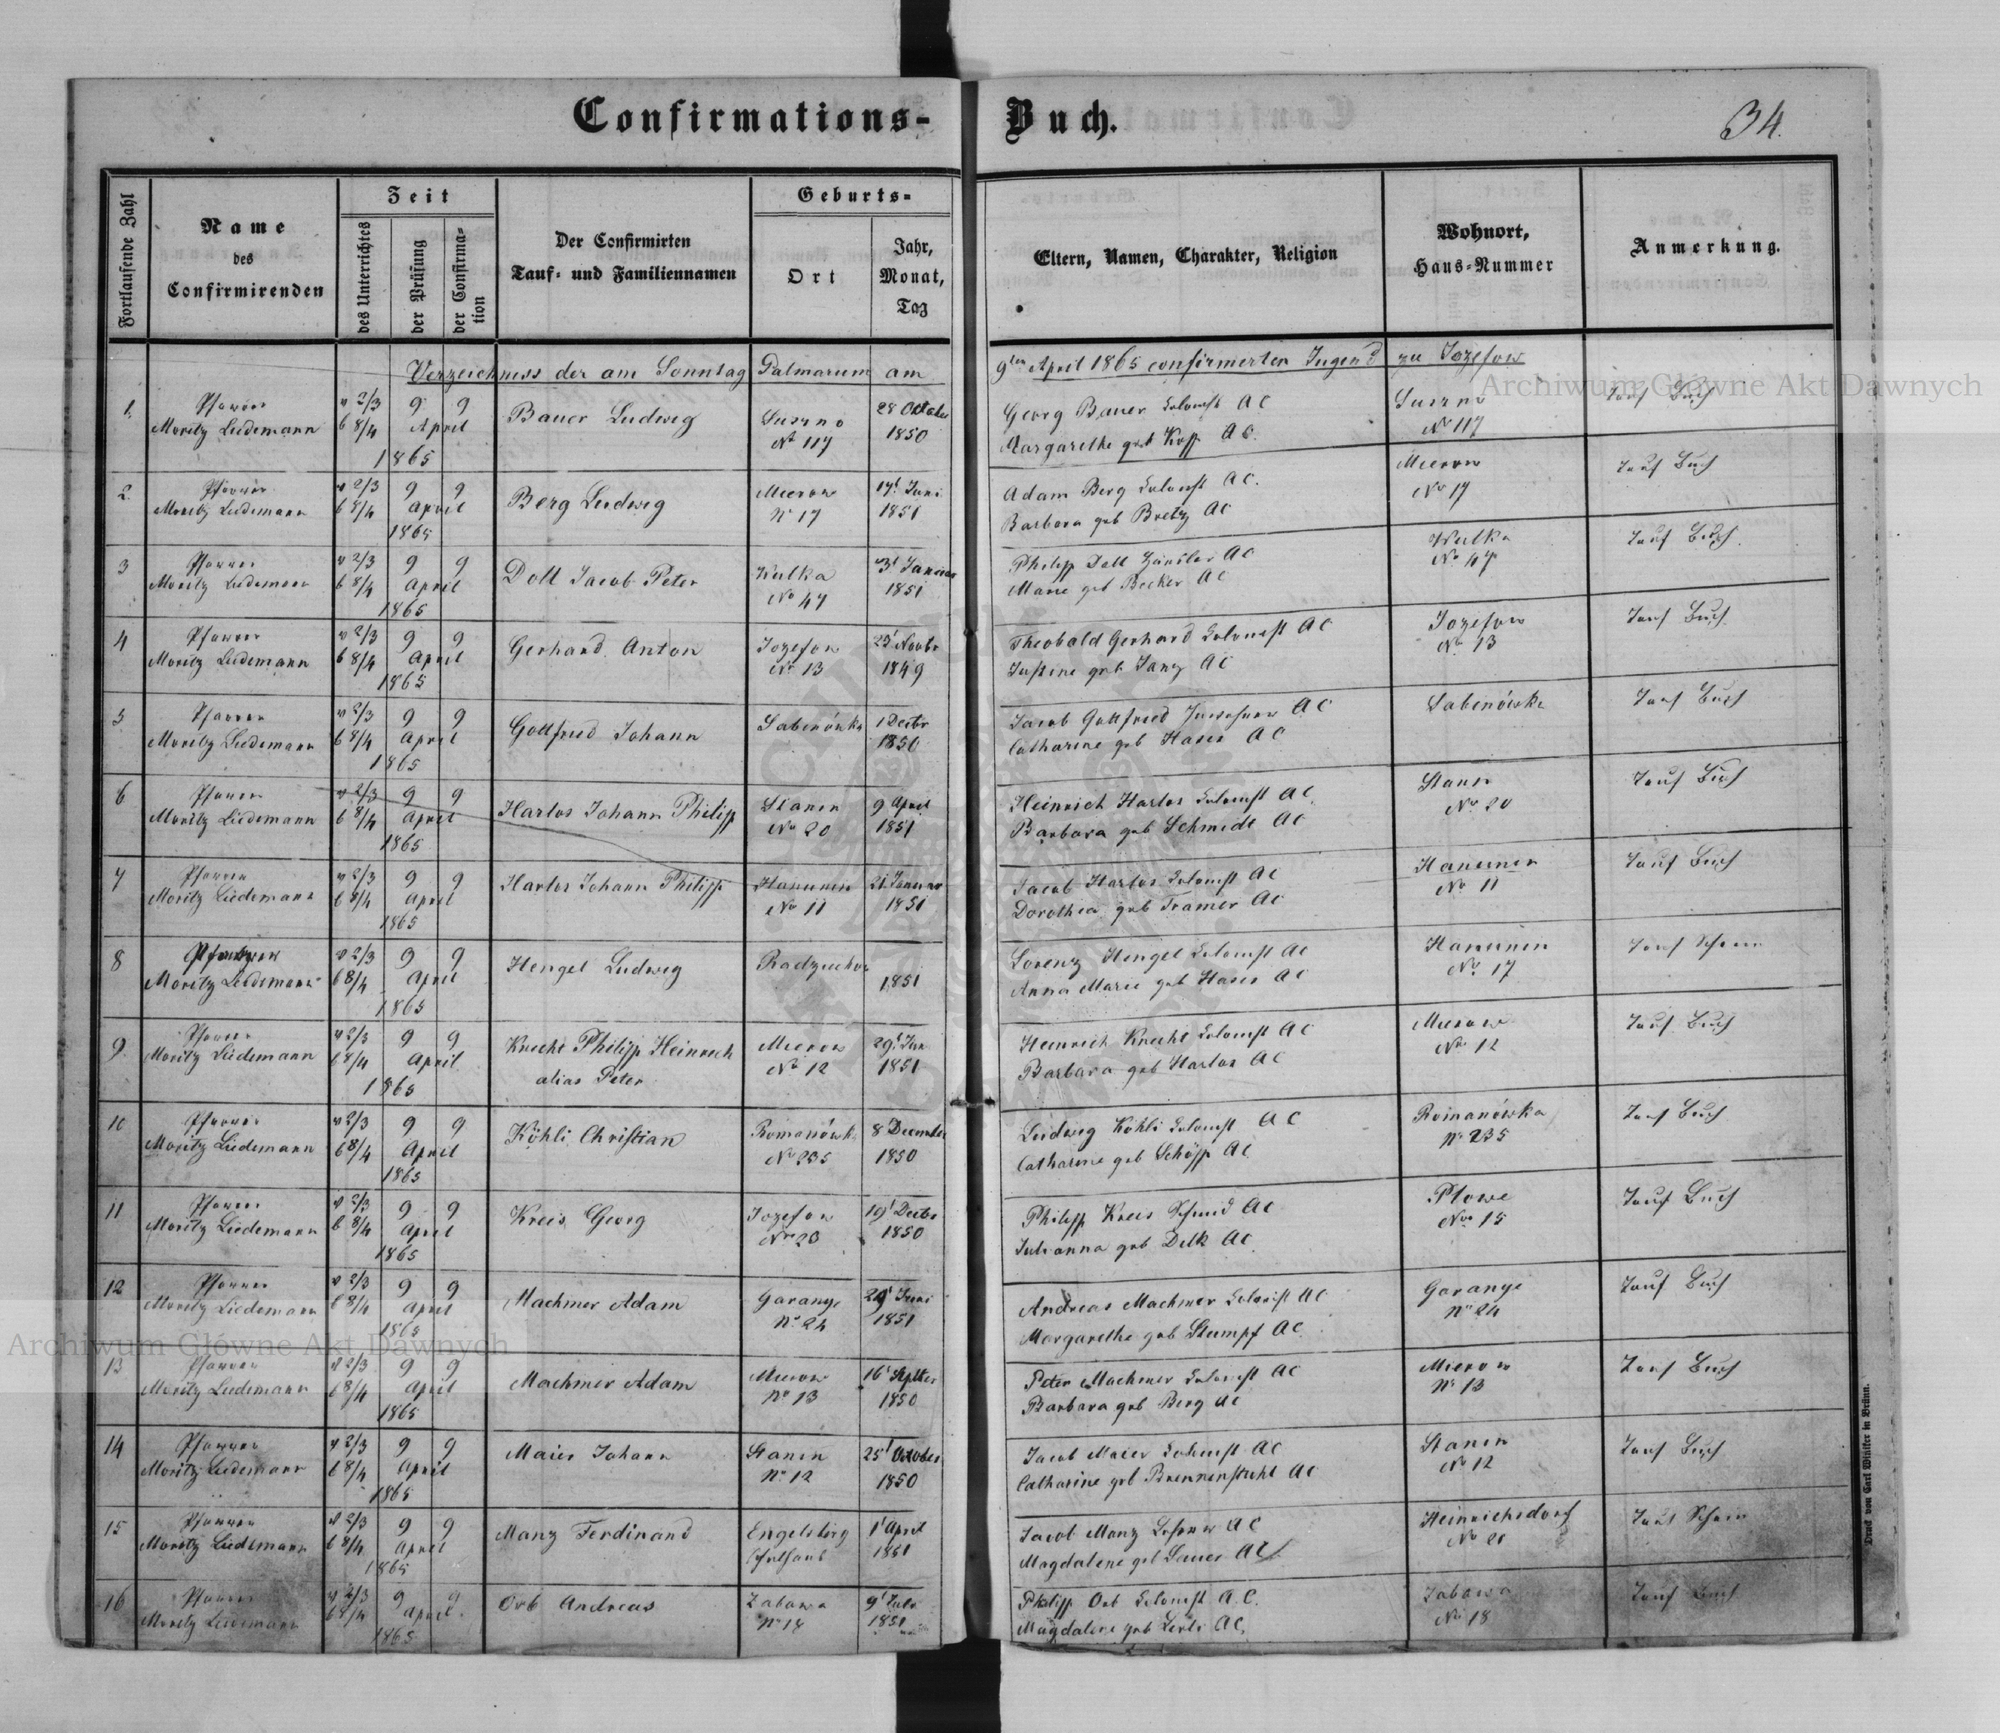 Confirmations- Buch.
34.
Fortlaufende Zahl
Name
des
Confirmirenden
Zeit
des Unterrichtes
der Prüfung
der Confirma-
tion
Der Confirmirten
Tauf- und Familiennamen
Geburts-
Ort
Jahr,
Monat,
Tag
Eltern, Namen, Charakter, Religion
Wohnort,
Haus-Nummer
Anmerkung.
Verzeichniss der am Sonntag Palmarum am 9ten April 1865 confirmerten Jugend zu Jozefow
1. Pfarrer v 2/3 9 9 Bauer Ludwig 28 October Georg Bauer Colonist AC Tauf Buch
Moritz Liedemann b 8/4 April No 117 1850 Margarethe geb AC. No 117
1865
2. Pfarrer v 2/3 9 9 Berg Ludwig Mierow 17t Juni Adam Berg Colonist AC. Mierow Tauf Buch
Moritz Liedemann b 8/4 April No 17 1851 Barbara geb Bretz AC No 17
1865
3 Pfarrer v 2/3 9 9 Doll Jacob Peter 3t Januar Philipp Doll AC Tauf Buch.
Moritz Liedemann b 8/4 April No 47 1851 Marie geb Becker AC No 47
1865
4 Pfarrer v 2/3 9 9 Gerhard Anton Jozefow 23t Novbr Theobald Gerhard Colonist AC Jozefow Tauf Buch.
Moritz Liedemann b 8/4 April No 13 1849 Justine geb Janz AC No 13
1865
5 Pfarrer v 2/3 9 9 Gottfried Johann Sabinówka 1 Decbr Jacob Gottfried AC Sabinówka Tauf Buch
Moritz Liedemann b 8/4 April 1850 Catharine geb Haser AC
1865
6 Pfarrer v 2/3 9 9 Harlos Johann Philipp Stanin 9 April Heinrich Harlos Colonist AC. Stanin Tauf Buch
Moritz Liedemann b 8/4 April No 20 1851 Barbara geb Schmidt AC No 20
1865
7 Pfarrer v 2/3 9 9 Harlos Johann Philipp Hanunin 21 Januar Jacob Harlos Colonist AC Hanunin Tauf Buch
Moritz Liedemann b 8/4 April No 11 1851 Dorothea geb Tramer AC No 11
1865
8 Pfarrer v 2/3 9 9 Hengel Ludwig Radziechow Lorenz Hengel Colonist AC Hanunin Tauf Schein
Moritz Liedemann b 8/4 April 1851 Anna Marie geb Haser AC No 17
1865
9. Pfarrer v 2/3 9 9 Knecht Philipp Heinrich Mierow 29t Heinrich Knecht Colonist AC Mierow Tauf Buch
Moritz Liedemann b 8/4 April alias Peter No 12 1851 Barbara geb Harlos AC No 12
1865
10 Pfarrer v 2/3 9 9 Köhli Christian Romanówka 8 December Ludwig Köhli Colonist AC Romanówka Tauf Buch
Moritz Liedemann b 8/4 April No 235 1850 Catharine geb Schöpp AC No 235
1865
11 Pfarrer v 2/3 9 9 Kreis Georg Jozefow 19t Decbr Philipp Kreis Schmid AC Plowe Tauf Buch
Moritz Liedemann b 8/4 April No 23 1850 Julianna geb Delk AC No 15
1865
12 Pfarrer v 2/3 9 9 Machmer Adam Garange 29t Juni Andreas Machmer Colonist AC Garange Tauf Buch
Moritz Liedemann b 8/4 April No 24 1851 Margarethe geb Stumpf AC. No 24
1865
13 Pfarrer v 2/3 9 9 Machmer Adam Mierow 16t Septber Peter Machmer Colonist AC Mierow Tauf Buch
Moritz Liedemann b 8/4 April No 13 1850 Barbara geb Berg AC No 13
1865
14 Pfarrer v 2/3 9 9 Maier Johann Stanin 25t October Jacob Maier Colonist AC Stanin Tauf Buch
Moritz Liedemann b 8/4 April No 12 1850 Catharine geb Brennenstuhl AC No 12
1865
15 Pfarrer v 2/3 9 9 Manz Ferdinand Engelsberg 1t April Jacob Manz AC Heinrichsdorf Tauf Schein
Moritz Liedemann b 8/4 April 1851 Magdalene geb Sauer AC
1865
16 Pfarrer v 2/3 9 9 Orb Andreas Zabawa 9t Philipp Orb Colonist A.C. Zabawa Tauf Buch
Moritz Liedemann b 8/4 April No 18 1851 Magdalene geb AC. No 18
1865
Druck von Carl Winiker in Brünn.
Archiwum Główne Akt Dawnych
Archiwum Główne Akt Dawnych